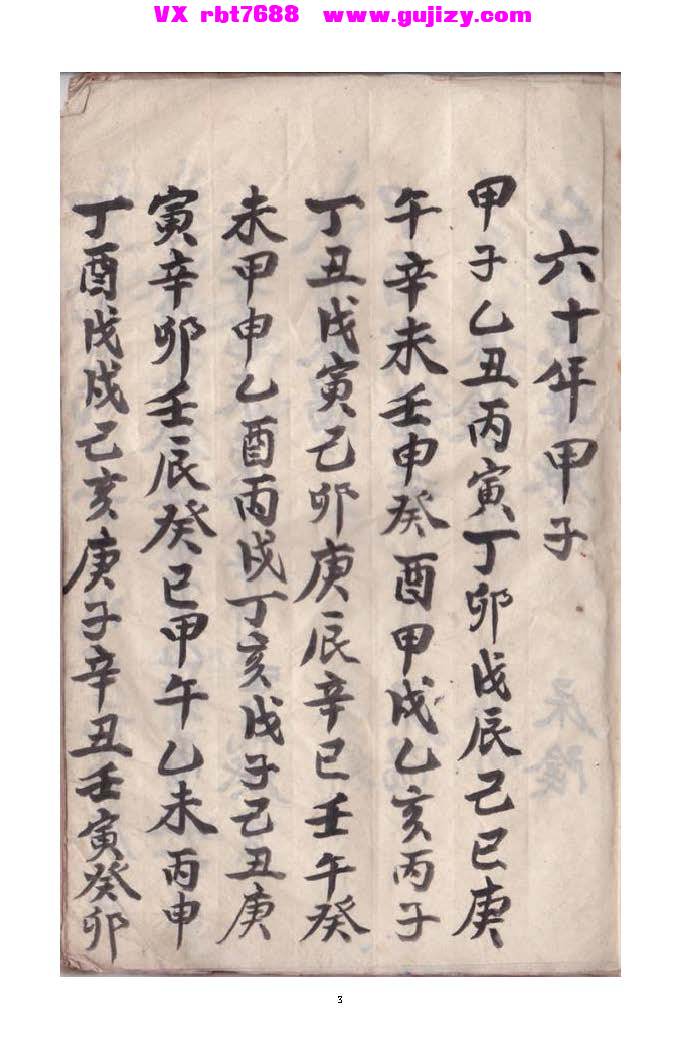 VX rbt7688 www.gujizy.com
六十年甲子
甲子乙丑丙寅丁卯戊辰己巳庚
午辛未壬申癸酉甲戌乙亥丙子
丁丑戊寅己卯庚辰辛巳壬午癸
未甲申乙酉丙戌丁亥戊子己丑庚
寅辛卯壬辰癸巳甲午乙未丙申
丁酉戊戌己亥庚子辛丑壬寅癸卯
3